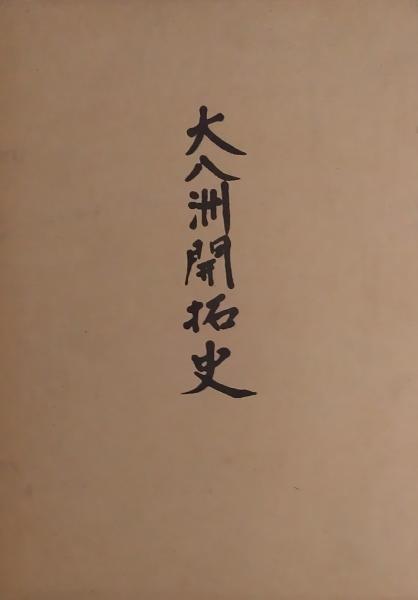 大八洲開拓史